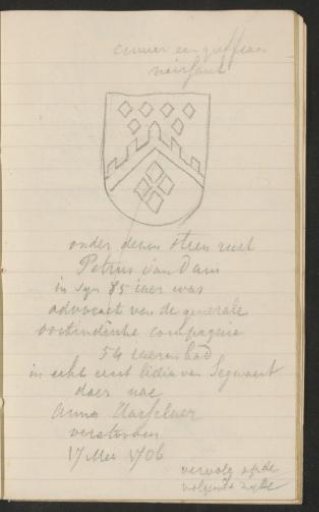 cimier een griffioen
onder desen steen rust
Petrus van Dam
in syn 85 iaer was
advocaet van de generale
oostindische compagnie
54 iaeren had
in echt eerst Lidia van Segwaert
daer nae
Anna Hasselaer
verstorben
17 Mei 1706
vervolg op de
volgende zijde